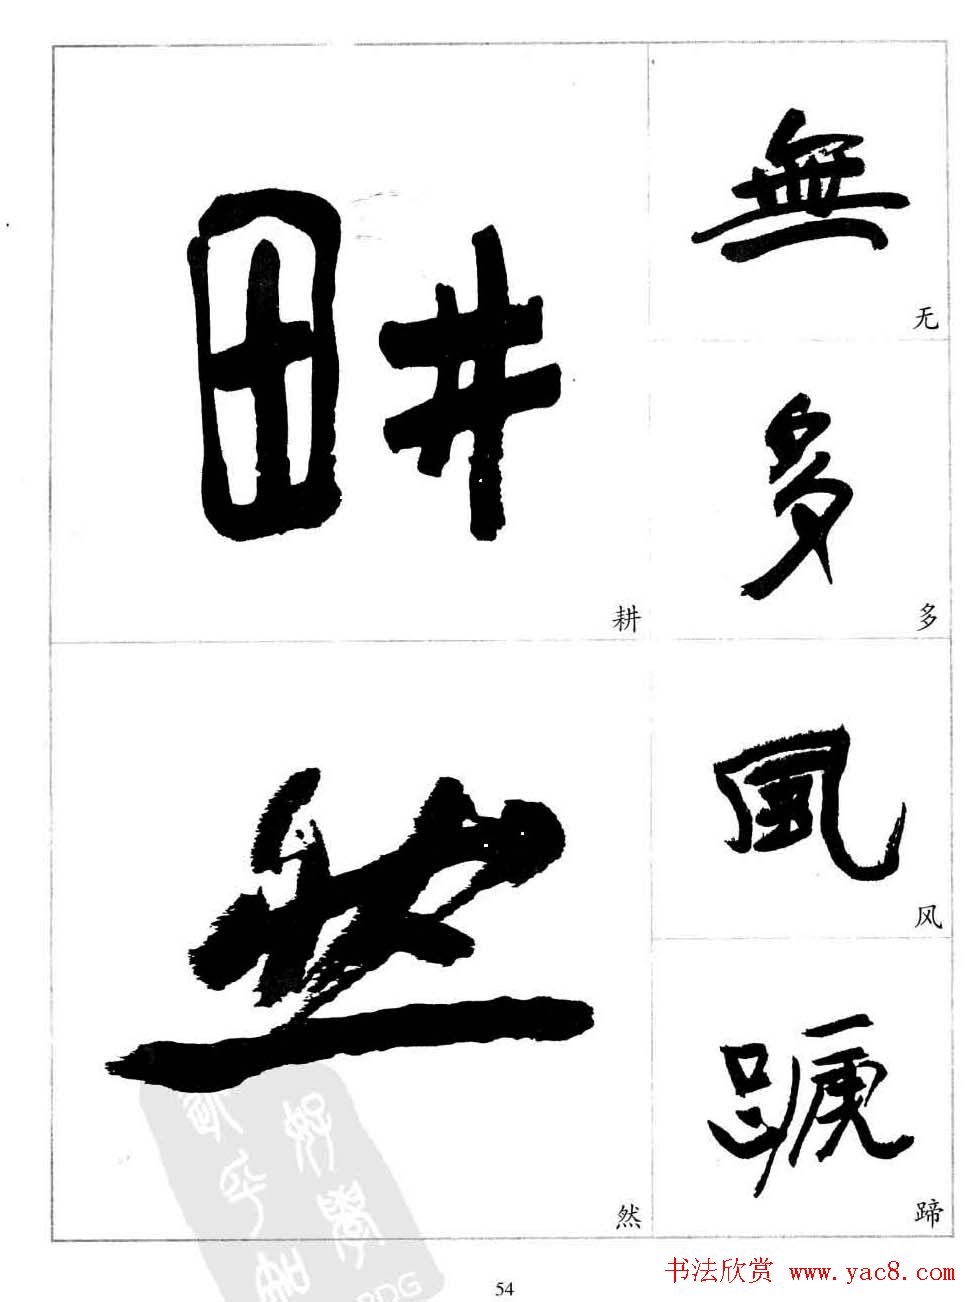 畊
耕
然
然
無
无
多
多
風
风
蹏
蹄
54
书法欣赏 www.yac8.com